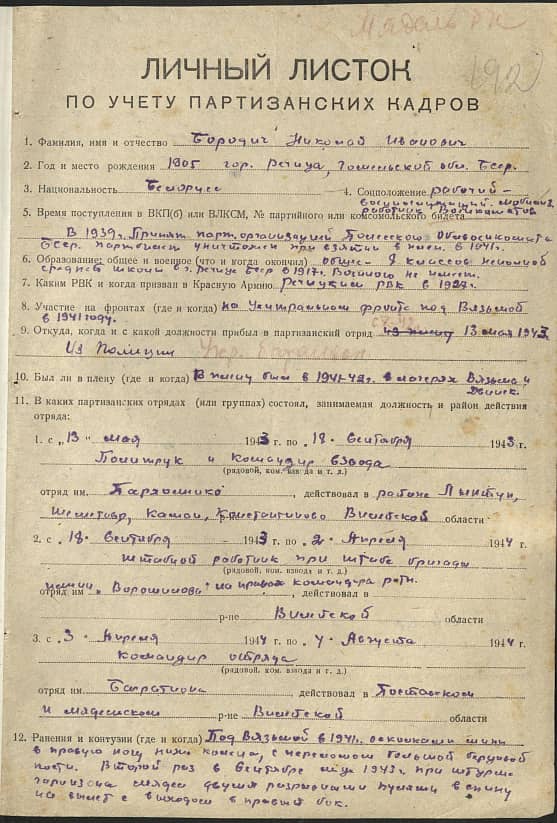 Мядель РК
192
ЛИЧНЫЙ ЛИСТОК
ПО УЧЕТУ ПАРТИЗАНСКИХ КАДРОВ
1. Фамилия, имя и отчество Бородич Николай Иванович
2. Год и место рождения 1905 гор. Речица, Гомельской обл. Бсср.
3. Национальность Белорусс 4. Соцположение рабочий –
5. Время поступления в ВКП(б) или ВЛКСМ, № партийного или комсомольского билета
В 1939 г. Принят парт. организацией Полесского Облвоенкомата
Бсср. партбилет уничтожен при взятии в плен. в 1941 г.
6. Образование: общее и военное (что и когда окончил) общее – 8 классов неполной
средней школы в г. Речице Бсср в 1917 г. Военного не имеет.
7. Каким РВК и когда призван в Красную Армию Речицким РВК в 1927 г.
8. Участие на фронтах (где и когда) на Центральном фронте под Вязьмой
в 1941 году.
9. Откуда, когда и с какой должности прибыл в партизанский отряд 13 мая 1943 г.
Из Полиции
10. Был ли в плену (где и когда) В плену был в 1941-42 г. в лагерях Вязьма и
Двинск.
11. В каких партизанских отрядах (или группах) состоял, занимаемая должность и район действия
отряда:
1. с „13" мая 1943 г. по 18 сентября 1943 г.
Политрук и командир взвода
(рядовой, ком. взвода и т. д.)
отряд им. Пархоменко, действовал в районе Лынтуп,
Камаи, Константиново Вилейской области
2. с 18. Сентября 1943 г. по 2. Апреля 1944 г.
Штабной работник при штабе бригады
(рядовой, ком. взвода и т. д.)
имени „Ворошилова" на правах командира роты.
отряд им , действовал в
р-не Вилейской области
3. с 3. Апреля 1944 г. по 4. Августа 1944 г.
Командир отряда
(рядовой, ком. взвода и т. д.)
отряд им. Багратиона действовал в Поставском
и Мядельском р-не Вилейской области
12. Ранения и контузии (где и когда) Под Вязьмой в 1941 г. осколками мины
в правую ногу ниже колена, с переломом большой берцовой
кости. Второй раз в Сентябре м-це 1943 г. при штурме
гарнизона Мядел двумя разрывными пулями в спину
на вылет с выходом в правый бок.